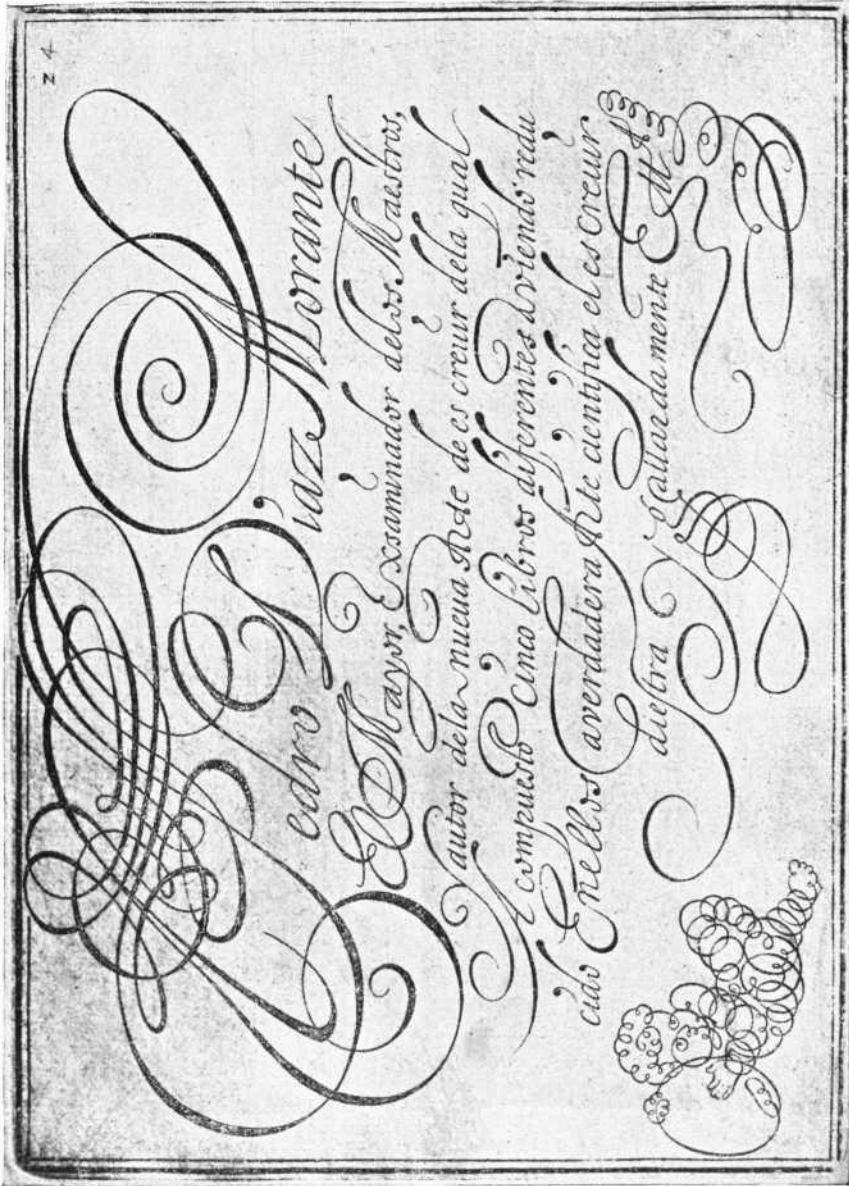 24
Pedro Diaz Morante
El Mayor, Exsaminador delos Maestros,
Yautor dela nueua Arte de es creuir dela qual
A compuesto cinco libros diferentes aviendo redu
cido Enellos averdadera Arte cientifica el es Creuir
diestra Y Gallardamente